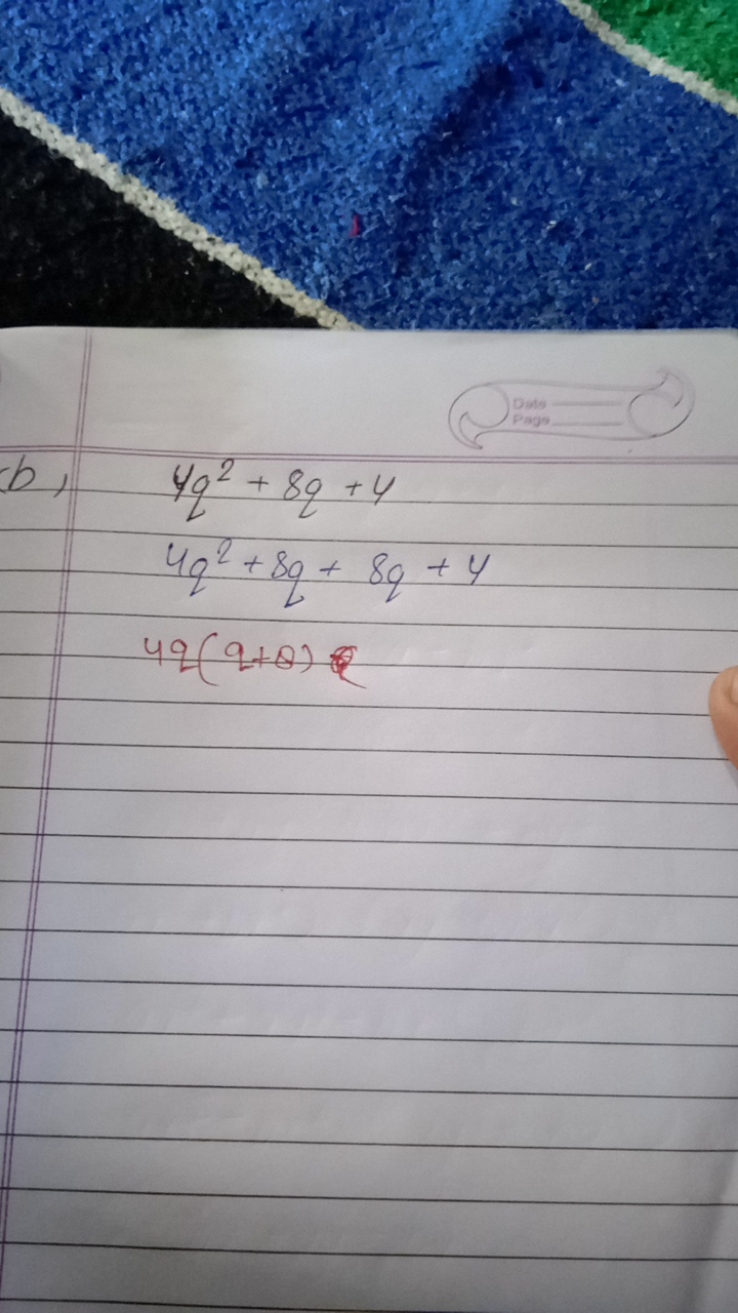 Date
Page
(b) 4q² + 8q + 4
4q² + 8q + 8q + 4
4q(q+8)